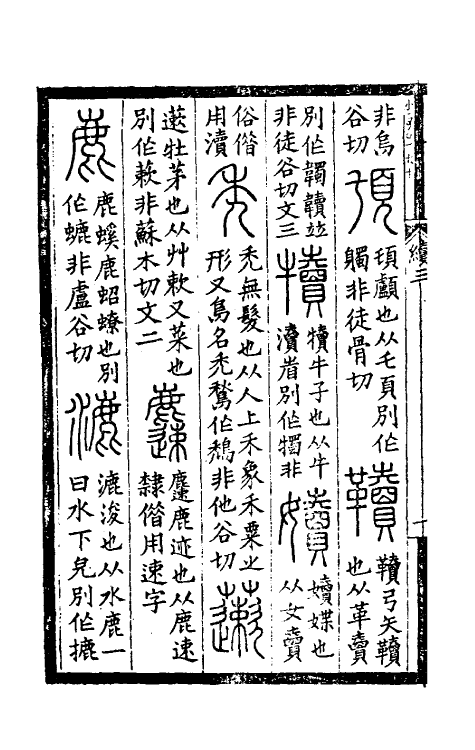 非烏
谷切
𩑒
𩑒顱也从乇頁別作
髑非徒骨切
韇
韇弓矢韇
也从革賣
別作韣韥竝
非徒谷切文三
犢
犢牛子也从牛
瀆省別作非
嬻
嬻媟也
从女賣
俗偕
用瀆
禿
禿無髮也从人上禾象禾粟之
形又鳥名禿鶖作鵚非他谷切
蔌
藗牡茅也从艸欶又菜也
別作蔌非蘇木切文二
𪋝
𪋝鹿迹也从鹿速
隸偕用速字
鹿
鹿螇鹿蛁蟟也別
作螰非盧谷切
漉
漉浚也从水鹿一
曰水下皃別作摝
續三
十